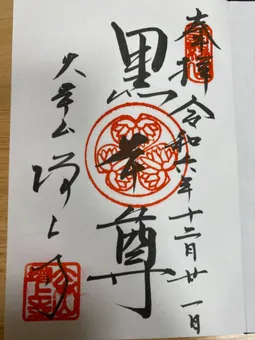 奉拝
令和六年十二月廿一日
黒本尊
大本山
増上寺